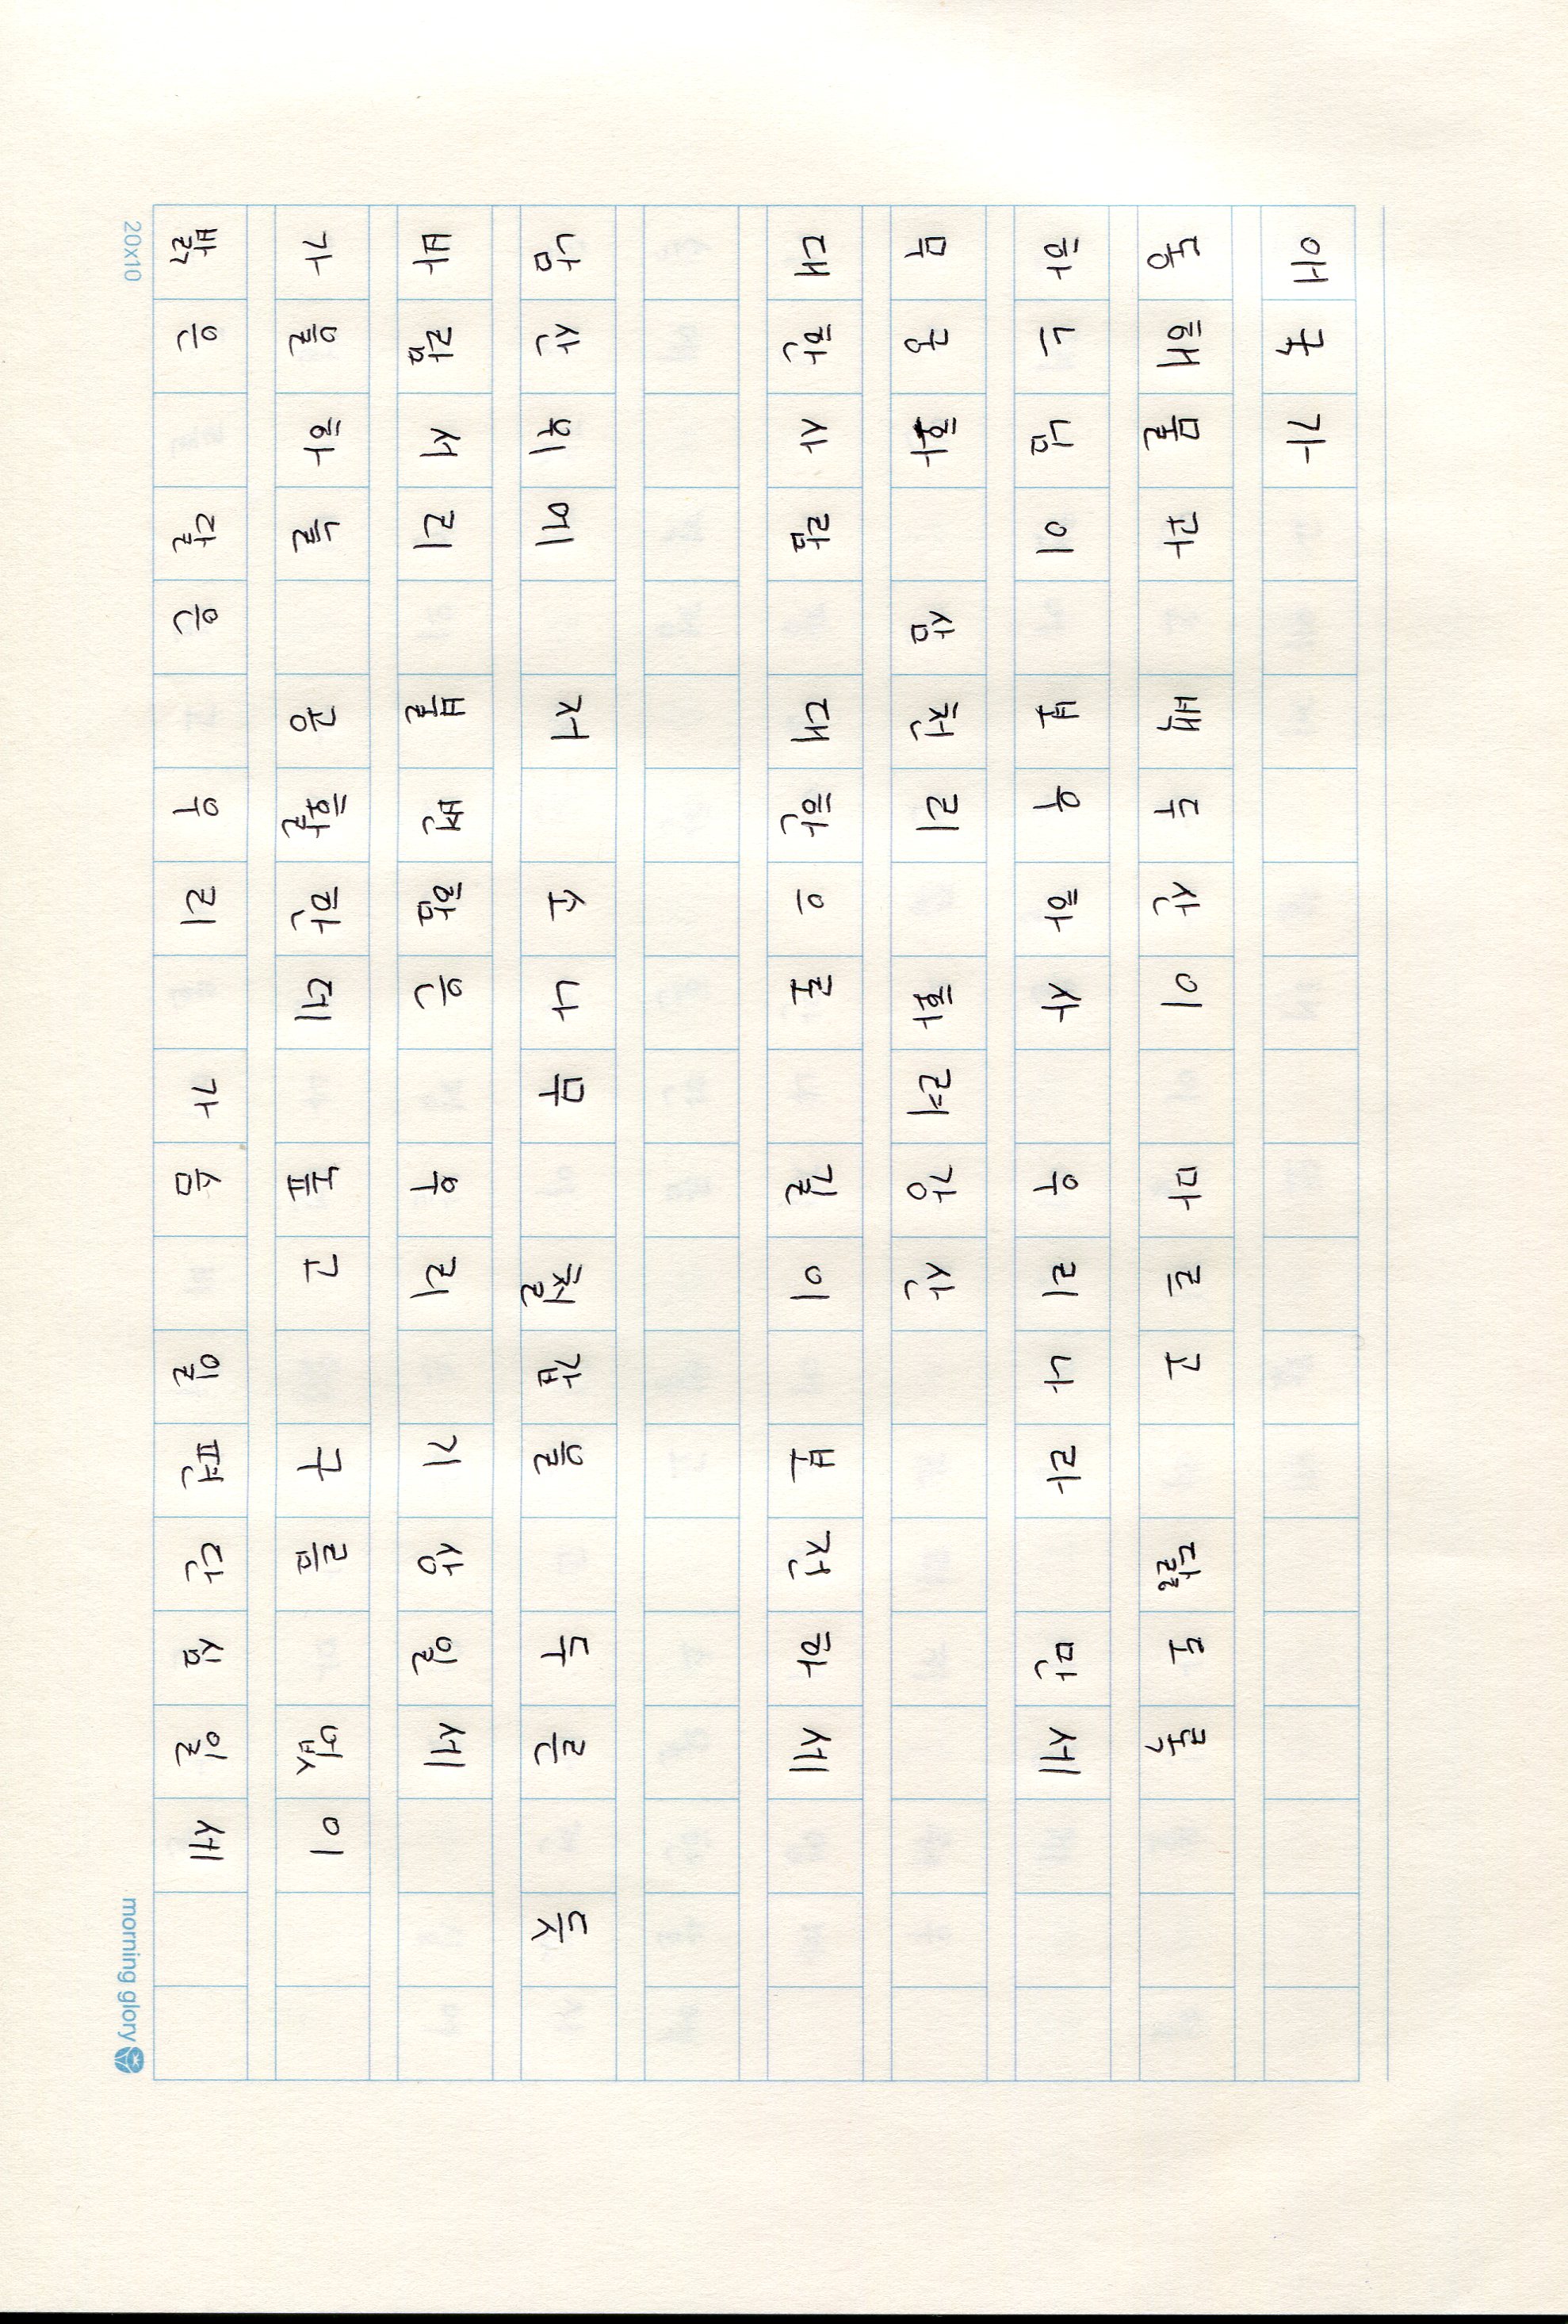 애국가
동해물과 백두산이 마르고 닳도록
하느님이 보우하사 우리나라 만세
무궁화 삼천리 화려강산
대한사람 대한으로 길이 보전하세
남산위에 저 소나무 철갑을 두른 듯
바람서리 불변함은 우리 기상일세
가을하늘 공활한데 높고 구름 없이
밝은 달은 우리 가슴 일편단심일세
20x10 morning glory